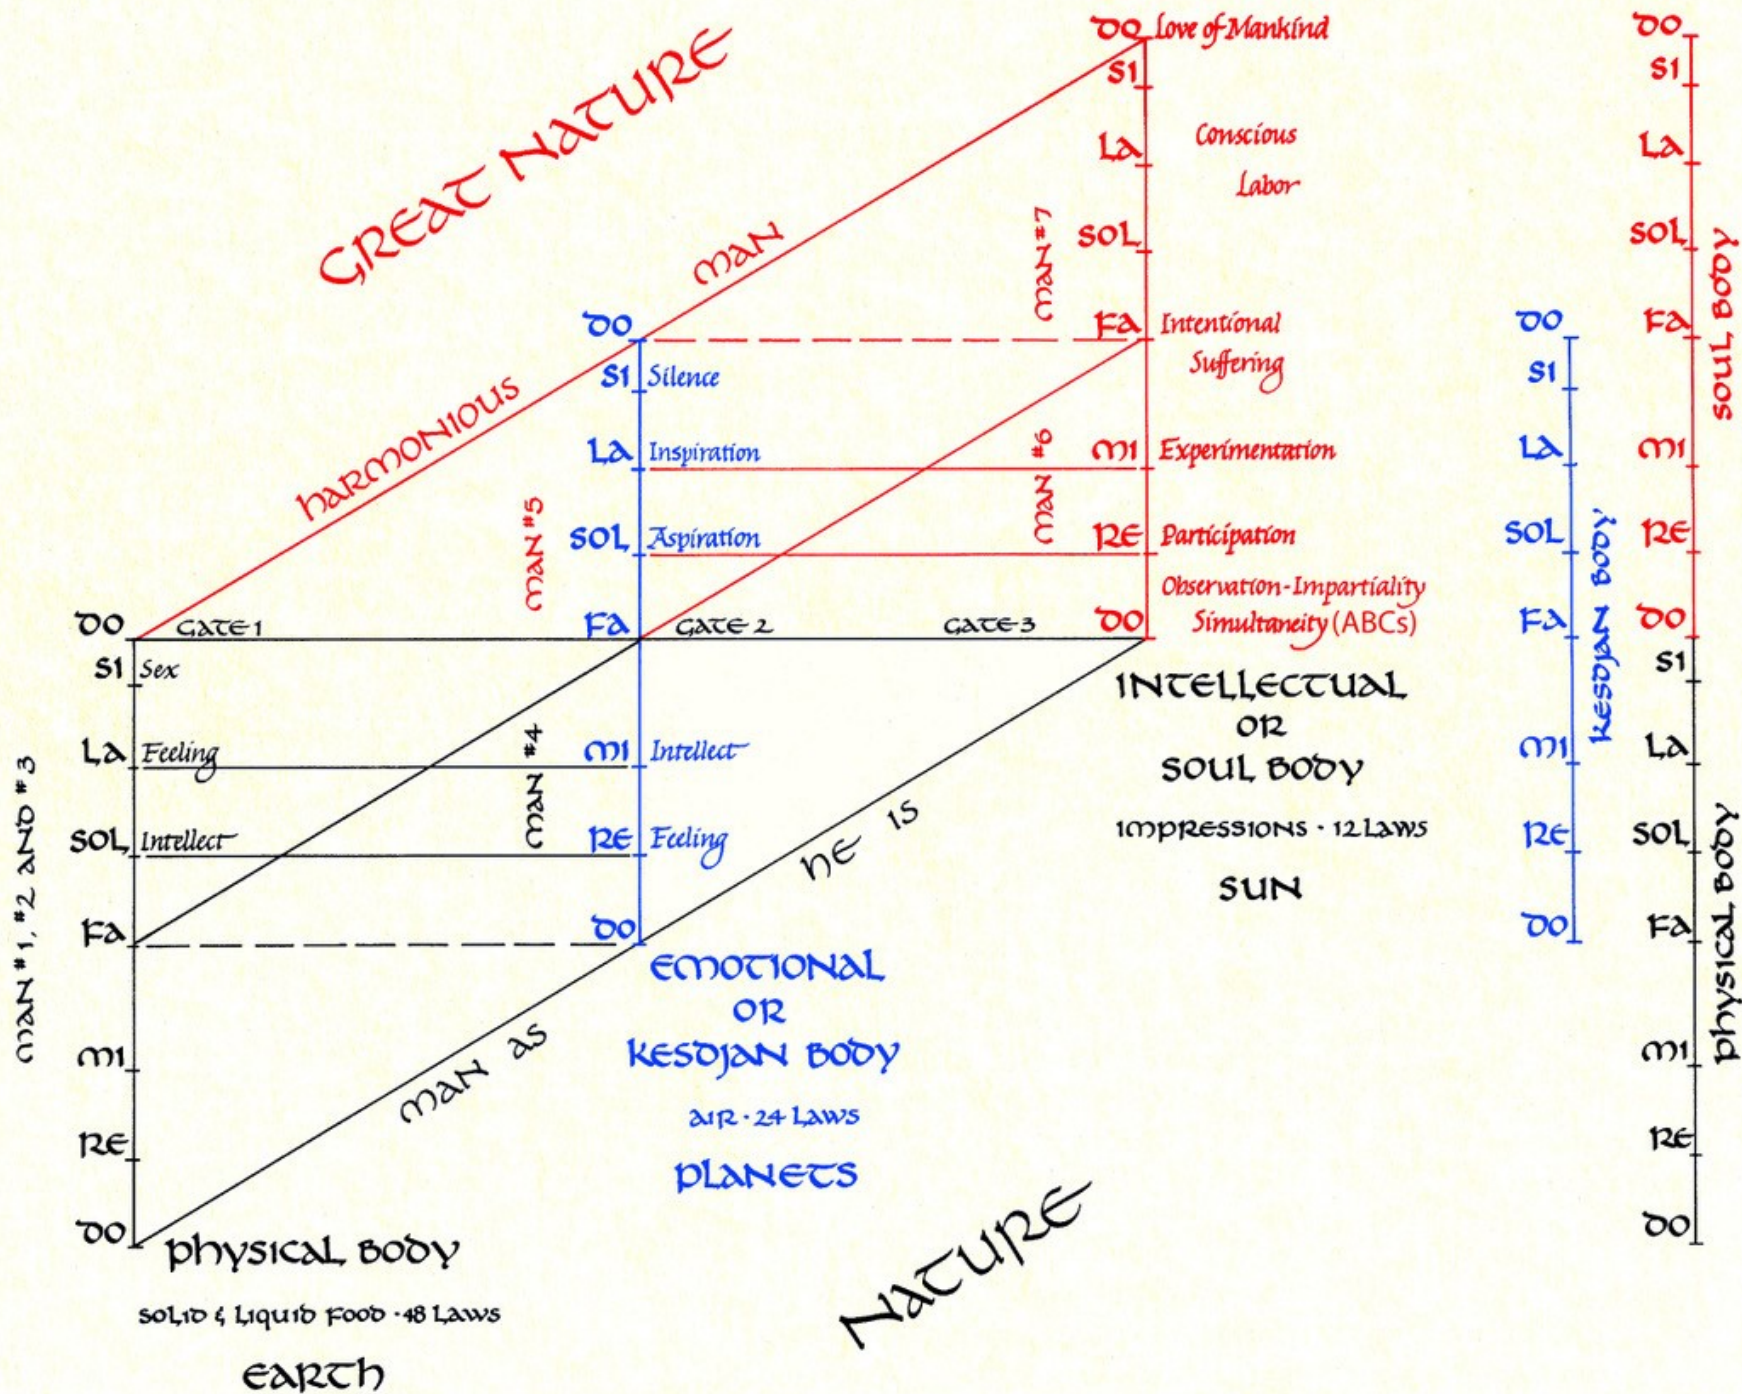 GREAT NATURE
HARMONIOUS MAN
MAN AS HE IS
NATURE
MAN #1, #2 AND #3
DO
SI Sex
LA Feeling
SOL Intellect
FA
MI
RE
DO
PHYSICAL BODY
SOLID & LIQUID FOOD · 48 LAWS
EARTH
GATE 1
GATE 2
GATE 3
MAN #5
MAN #4
DO
SI Silence
LA Inspiration
SOL Aspiration
FA
MI Intellect
RE Feeling
DO
EMOTIONAL
OR
KESDJAN BODY
AIR · 24 LAWS
PLANETS
MAN #7
MAN #6
DO Love of Mankind
SI
Conscious
LA
Labor
SOL
FA Intentional
Suffering
MI Experimentation
RE Participation
Observation-Impartiality
DO Simultaneity (ABCs)
INTELLECTUAL
OR
SOUL BODY
IMPRESSIONS · 12 LAWS
SUN
DO
SI
LA
SOL
FA
MI
RE
DO
KESDJAN BODY
DO
SI
LA
SOL
FA
MI
RE
DO
SI
LA
SOL
FA
MI
RE
DO
SOUL BODY
PHYSICAL BODY